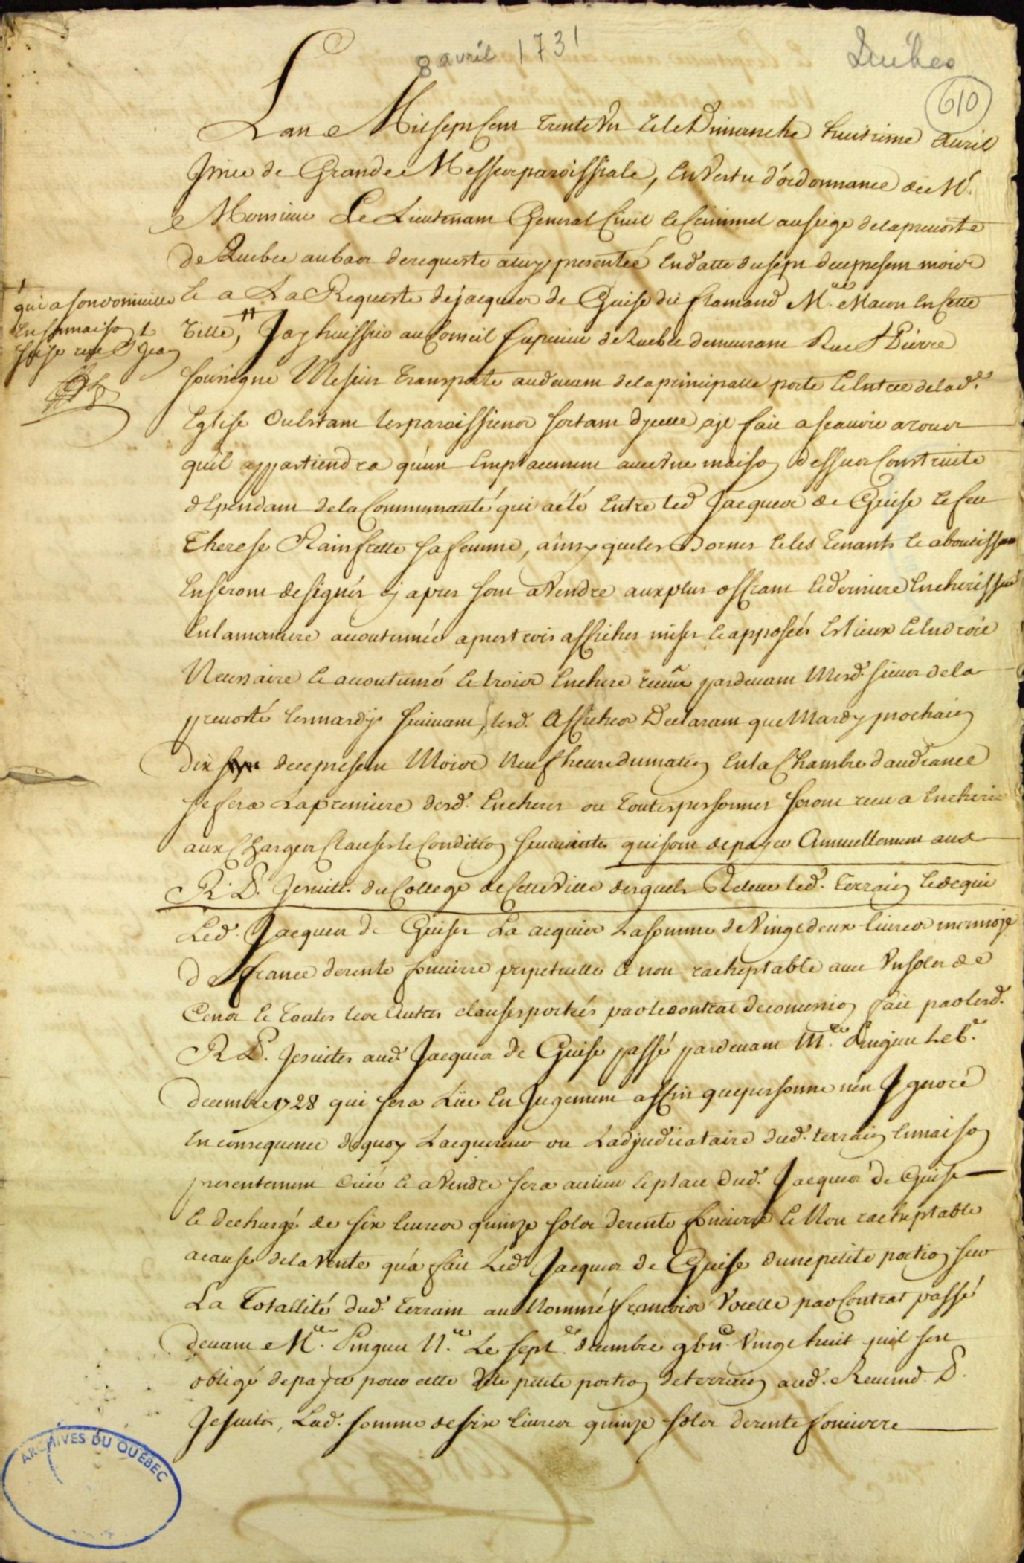 8 avril 1731
Québec
610
Lan Mil sept Cent trente Un le Dimanche huitieme avril
Issue de Grande Messe paroissiale, En Vertu d'ordonnance de Mr.
Monsieur Le Lieutenant General Civil le Criminel au siege de la prevosté
de Quebec au bas de requeste a luy presentée En datte du sept du present mois
le a La Requeste de jacques de Guise dit flamand Me. Macon En Cette
qui a son domicille
En sa maison
size rue St Jean
Ville, Jay huissier au Conseil superieur de Quebec demeurant Rue St Pierre
soussigné Me suis transporté au devant de la principalle porte le Entrée de lad.
Eglise Ou Estant les paroissiens sortant dycelle, ajé fait a scavoir a tous
quil appartiendra qu'un Emplacement avec Une maison dessus Construite
dependant de la Communauté qui a été Entre led. Jacques de Guise le feu
Therese Rainfrette sa femme, ainsy que les Bornes le les tenants le aboutissans
En seront designés cy apres sont a Vendre au plus offrant le dernier Encherisseur
En la maniere accoutumée apres trois affiches mises le apposées Es lieux le Endroits
Necessaire le accoutumé le trois Enchere recue pardevant Mesd. sieurs de la
prevosté les mardys suivant, lesd. Affiches Declarant que Mardy prochain
dix du present Mois Neuf heure du matin En la Chambre d'audiance
se fera La premiere desd. Encheres ou toutes personnes seront recu a Encherir
aux Charges Clauses le Condition suivante qui sont de payer Annuellement aux
R. P. Jesuites du College de Cette Ville desquels Releve led. terrain le de qui
Led. Jacques de Guise La acquis La somme de Vingt deux livres monnoye
de france de rente fonciere perpetuelle le non racheptable avec Un sols de
Cens le toutes les Autres clauses portées par le contrat de concession fait par lesd.
R. P. Jesuites aud. Jacques de Guise passé pardevant Me. Pinguet Le 6e.
decembre 1728 qui sera Lue En Jugement affin que personne n'en Ignore
En consequence de quoy Lacquereur ou Ladjudicataire dud. terrain le maison
presentement Crié le a Vendre sera au lieu le place dud. Jacques de Guise
le dechargé de six livres quinze sols de rente fonciere le Non racheptable
a cause de la Vente qu'a fait Led. Jacques de Guise d'une petite portion sur
La Totallité dud. terrain au Nommé francois Vocelle par Contrat passé
devant Me. Pinguet Nre. Le sept decembre gbiic Vingt huit quil sera
obligé de payer pour cette dite petite portion de terrain aud. Reverend. P.
Jesuites, Lad. somme de six livres quinze sols de rente fonciere
ARCHIVES DU QUÉBEC